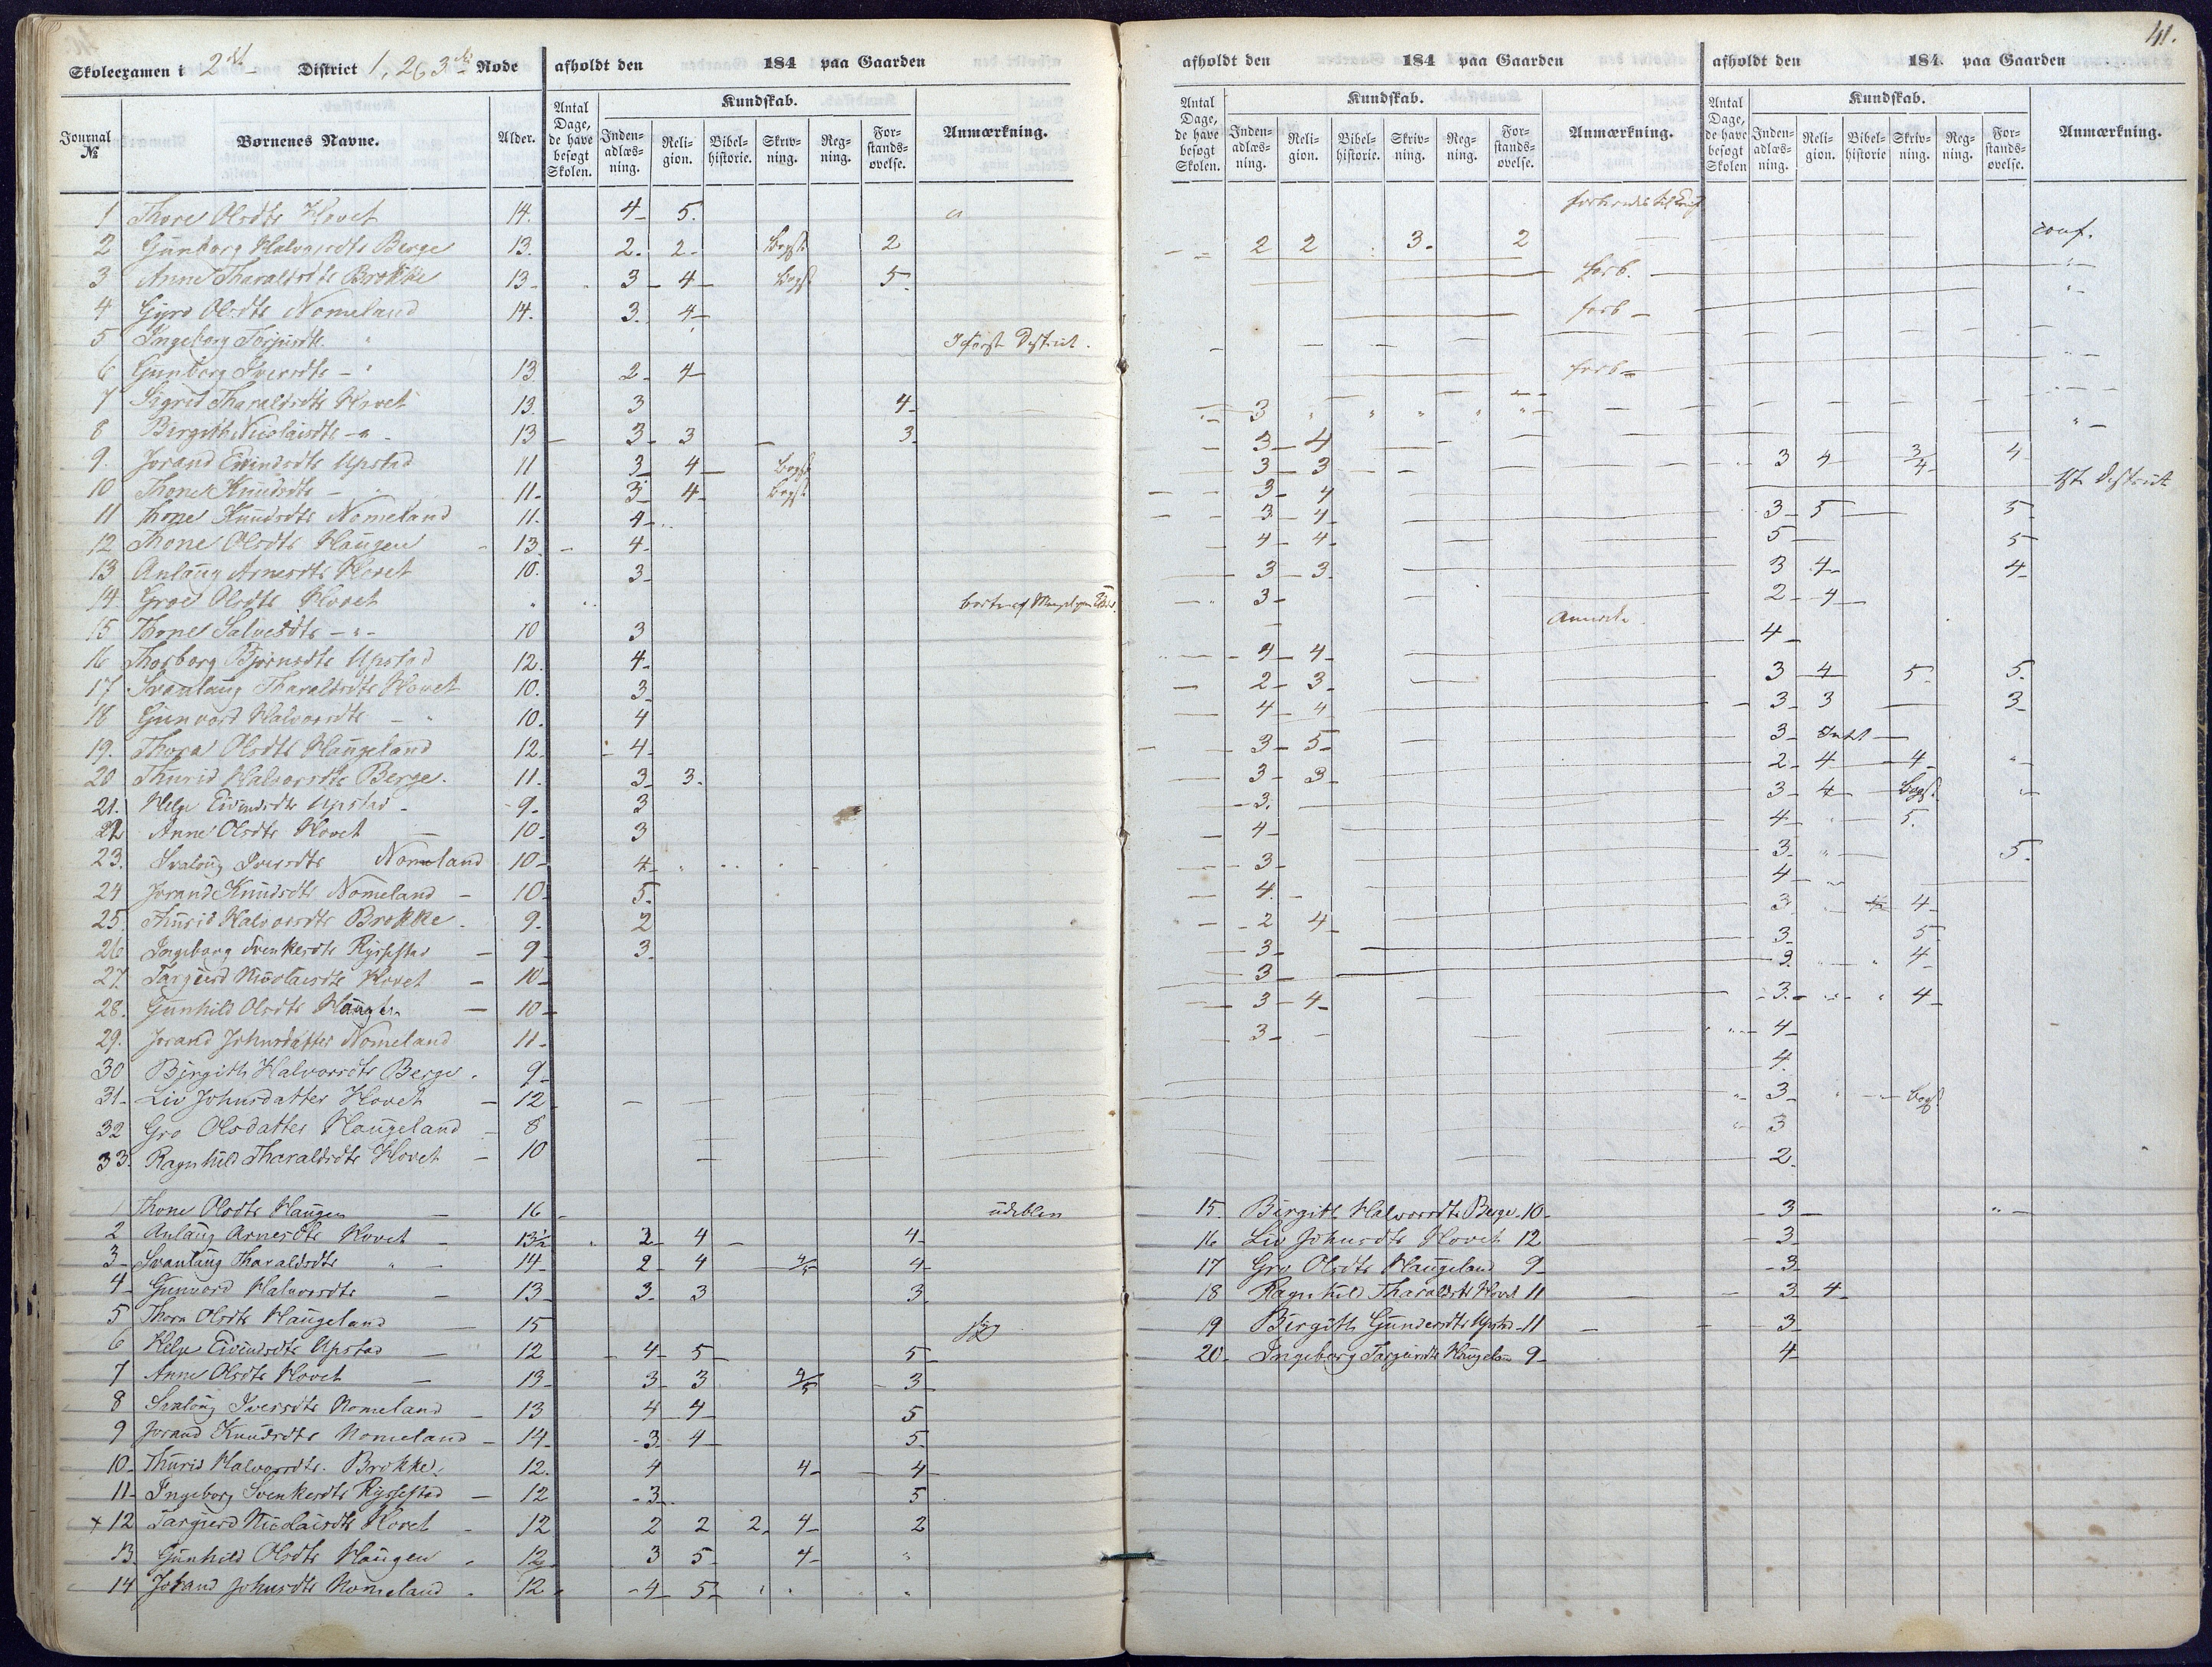 41.
Skoleexamen i 2det District 1, 2 & 3die Rode afholdt den 184 paa Gaarden
Journal № Børnenes Navne. Alder. Antal Dage, de have besøgt Skolen. Kundskab. Indenadlæsning. Religion. Bibelhistorie. Skrivning. Regning. Forstandsøvelse. Anmærkning.
1 Thore Olsdtr Hovet 14. 4 5.
2 Gunborg Halvorsdtr Berge 13. 2. 2 Bogst 2
3 Anne Tharaldsdtr Brokke 13 3 4 Bogst 5
4 Gyro Olsdtr Nomeland 14. 3. 4
5 Ingeborg Torjusdtr " I første District.
6 Gunborg Iversdtr " 13 2 4
7 Sigrid Tharaldsdtr Hovet 13. 3 4
8 Birgith Nicolaisdtr " 13 3 3 3
9. Jorand Eivindsdtr Upstad 11 3 4 Bogst
10 Thone Knudsdtr " 11 3 4 Bogst
11 Thone Knudsdtr Nomeland 11. 4
12 Thone Olsdtr Haugen 13 4
13 Anlaug Arnesdtr Hovet 10. 3
14 Groe Olsdtr Hovet "
15 Thone Salvesdtr " 10 3
16 Thorborg Bjørnsdtr Upstad 12. 4
17 Svanlaug Tharaldsdtr Hovet 10. 3
18 Gunvord Halvorsdtr " 10. 4
19. Thora Olsdtr Haugeland 12. 4
20 Thurid Halvorsdtr Berge. 11. 3 3.
21. Helge Eivindsdtr Upstad 9 3
22 Anne Olsdtr Hovet 10 3
23. Svalaug Iversdtr Nomeland 10 4
24 Jorand Knudsdtr Nomeland 10 5.
25. Thurid Halvorsdtr Brokke 9. 2
26 Ingeborg Svenkesdtr Rysstad 9 3
27. Targjerd Nicolaisdtr Hovet 10
28. Gunhild Olsdtr Haugen 10
29. Jorand Johnsdatter Nomeland 11
30 Birgith Halvorsdtr Berge. 9
31 Liv Johnsdatter Hovet 12
32 Gro Olsdatter Haugeland 8
33. Ragnhild Tharaldsdtr Hovet 10
1 Thone Olsdtr Haugen 16 udebleven
2 Anlaug Arnesdtr Hovet 13½ 2 4 4
3 Svanlaug Tharaldsdtr " 14 2 4 4/5 4
4 Gunvord Halvorsdtr 13 3. 3 3
5 Thora Olsdtr Haugeland 15 syg
6 Helge Eivindsdtr Upstad 12 4 5 5
7 Anne Olsdtr Hovet 13 3 3 4/5 3
8 Svalaug Iversdtr Nomeland 13 4 4 5
9 Jorand Knudsdtr Nomeland 14 3 4 5
10 Thurid Halvorsdtr. Brokke. 12. 4 4 4
11 Ingeborg Svenkesdtr Rysstad 12 3 5
+ 12 Targjerd Nicolaisdtr Hovet 12 2 2 2 4 2
13 Gunhild Olsdtr Haugen 12 3 5 4 "
14 Jorand Johnsdtr Nomeland 12 4 5
afholdt den 184 paa Gaarden
Antal Dage, de have besøgt Skolen. Kundskab. Indenadlæsning. Religion. Bibelhistorie. Skrivning. Regning. Forstandsøvelse. Anmærkning.
afholdt den 184. paa Gaarden
Antal Dage, de have besøgt Skolen Kundskab. Indenadlæsning. Religion. Bibelhistorie Skrivning. Regning. Forstandsøvelse. Anmærkning.
2 2 3 2 conf.
forb. "
forb "
forb
3
3 4
3 3 3 4 3/4 4
3 4 1ste District
3 4 3 5 5
4 4 5 5
3 3 3 4 4
3 2 4
4
4 4 3 4 5 5.
2 3 3 3 3
4 4 3 Intet
3 5 2 4 4
3 3 3 4 Bogst.
3. 4 5.
4 3 5.
3 4
4 3 4
2 4 3 5
3 3. 4
3 3. 4
3 4 4
3 4.
3 Bogst
3
2.
15. Birgith Halvorsdtr Berge 10 3
16 Liv Johnsdtr Hovet 12 3
17 Gro Olsdtr Haugeland 9 3
18 Ragnhild Tharaldsdtr Hovet 11 3 4
19 Birgith Gundersdtr Upstad 11 3
20 Ingeborg Targeirsdtr Haugeland 9 4